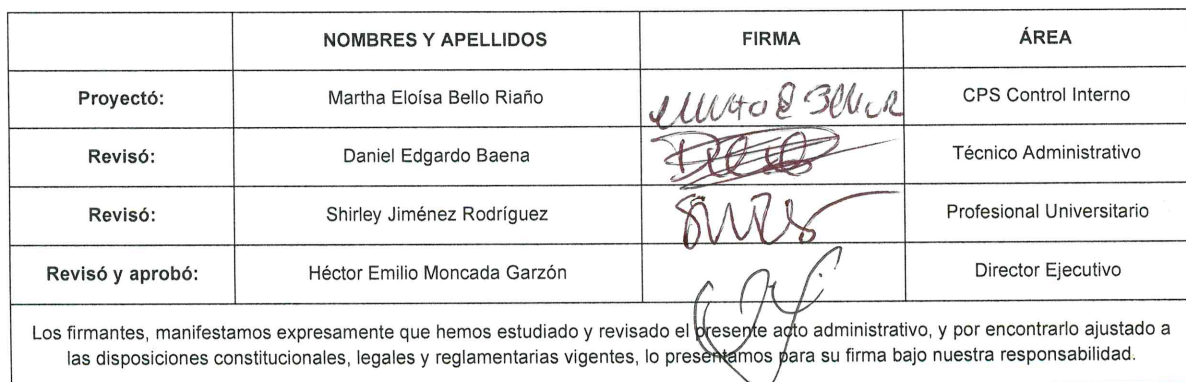 NOMBRES Y APELLIDOS FIRMA ÁREA
Proyectó: Martha Eloísa Bello Riaño CPS Control Interno
Revisó: Daniel Edgardo Baena Técnico Administrativo
Revisó: Shirley Jiménez Rodríguez Profesional Universitario
Revisó y aprobó: Héctor Emilio Moncada Garzón Director Ejecutivo
Los firmantes, manifestamos expresamente que hemos estudiado y revisado el presente acto administrativo, y por encontrarlo ajustado a
las disposiciones constitucionales, legales y reglamentarias vigentes, lo presentamos para su firma bajo nuestra responsabilidad.